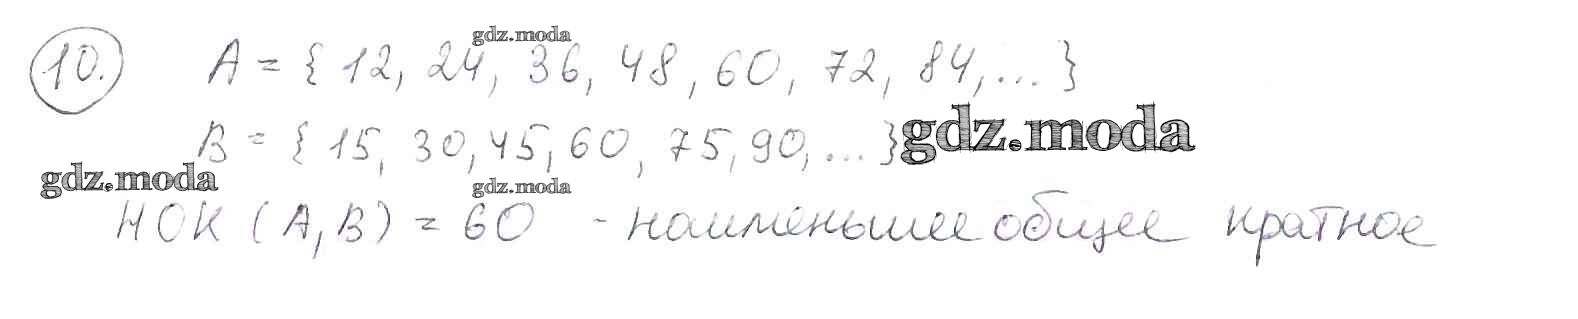 gdz.moda
10. A = { 12, 24, 36, 48, 60, 72, 84, ... }
B = { 15, 30, 45, 60, 75, 90, ... }
gdz.moda
gdz.moda
gdz.moda
НОК (A, B) = 60 - наименьшее общее кратное